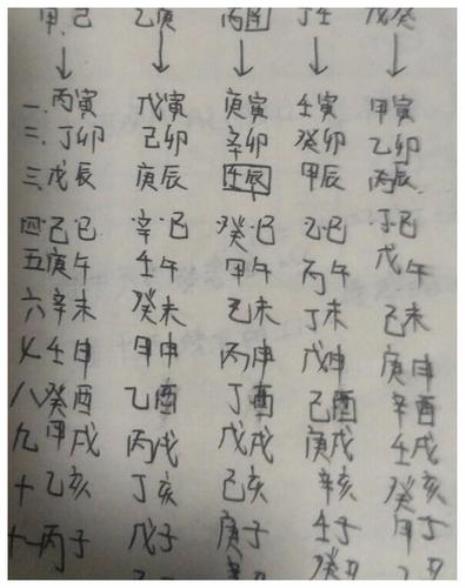 甲己 乙庚 丙 丁壬 戊癸
一.丙寅 戊寅 庚寅 壬寅 甲寅
二.丁卯 己卯 辛卯 癸卯 乙卯
三.戊辰 庚辰 壬辰 甲辰 丙辰
四.己巳 辛巳 癸巳 乙巳 丁巳
五庚午 壬午 甲午 丙午 戊午
六辛未 癸未 乙未 丁未 己未
七壬申 甲申 丙申 戊申 庚申
八癸酉 乙酉 丁酉 己酉 辛酉
九甲戌 丙戌 戊戌 庚戌 壬戌
十乙亥 丁亥 己亥 辛亥 癸亥
十一丙子 戊子 庚子 壬子 甲子
癸丑